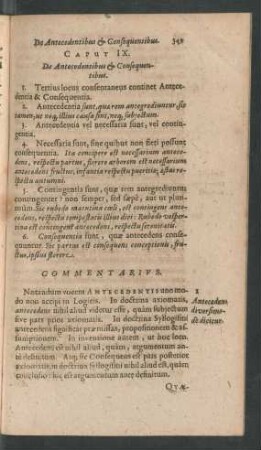 De Antecedentibus & Consequentibus.
CAPUT IX.
De Antecedentibus & Consequen-
tibus.
1. Tertius locus consentaneus continet Antece-
dentia & Consequentia.
2. Antecedentia sunt, quæ rem antegrediuntur, sic
tamen, ut neq; illius causa sint, neq; subjectum.
3. Antecedentia vel necessaria sunt, vel contin-
gentia.
4. Necessaria sunt, sine quibus non fieri possunt
consequentia. Ita concipere est necessarium antece-
dens, respectu partus, florere arborem est necessarium
antecedens fructus, infantia respectu pueritiæ, æstas re-
spectu autumni.
5. Contingentia sunt, quæ rem antegrediuntur
contingenter, non semper, sed sæpe, aut ut plu-
rimum. Sic rubedo matutina cœli, est contingens ante-
cedens, respectu tempestatis illius diei: Rubedo vesper-
tina est contingens antecedens, respectu serenitatis.
6. Consequentia sunt, quæ antecedentia conse-
quuntur. Sic partus est consequens conceptionis, fru-
ctus, ipsius florere.
COMMENTARIUS.
Notandum vocem ANTECEDENTIS uno mo-
do non accipi in Logica. In doctrina axiomatis,
antecedens nihil aliud videtur esse, quàm subjectum
sive pars prior axiomatis. In doctrina Syllogismi
antecedentia significat præmissas, propositionem &
assumptionem. In inventione autem, ut hoc loco,
Antecedens est nihil aliud, quàm, argumentum an-
te definitum. Atq; sic Consequens est pars posterior
axiomatis, in doctrina Syllogismi nihil aliud est, quàm
conclusio: hic est argumentum
1
Antecedens
diversimo-
dè dicitur.
QUÆ-